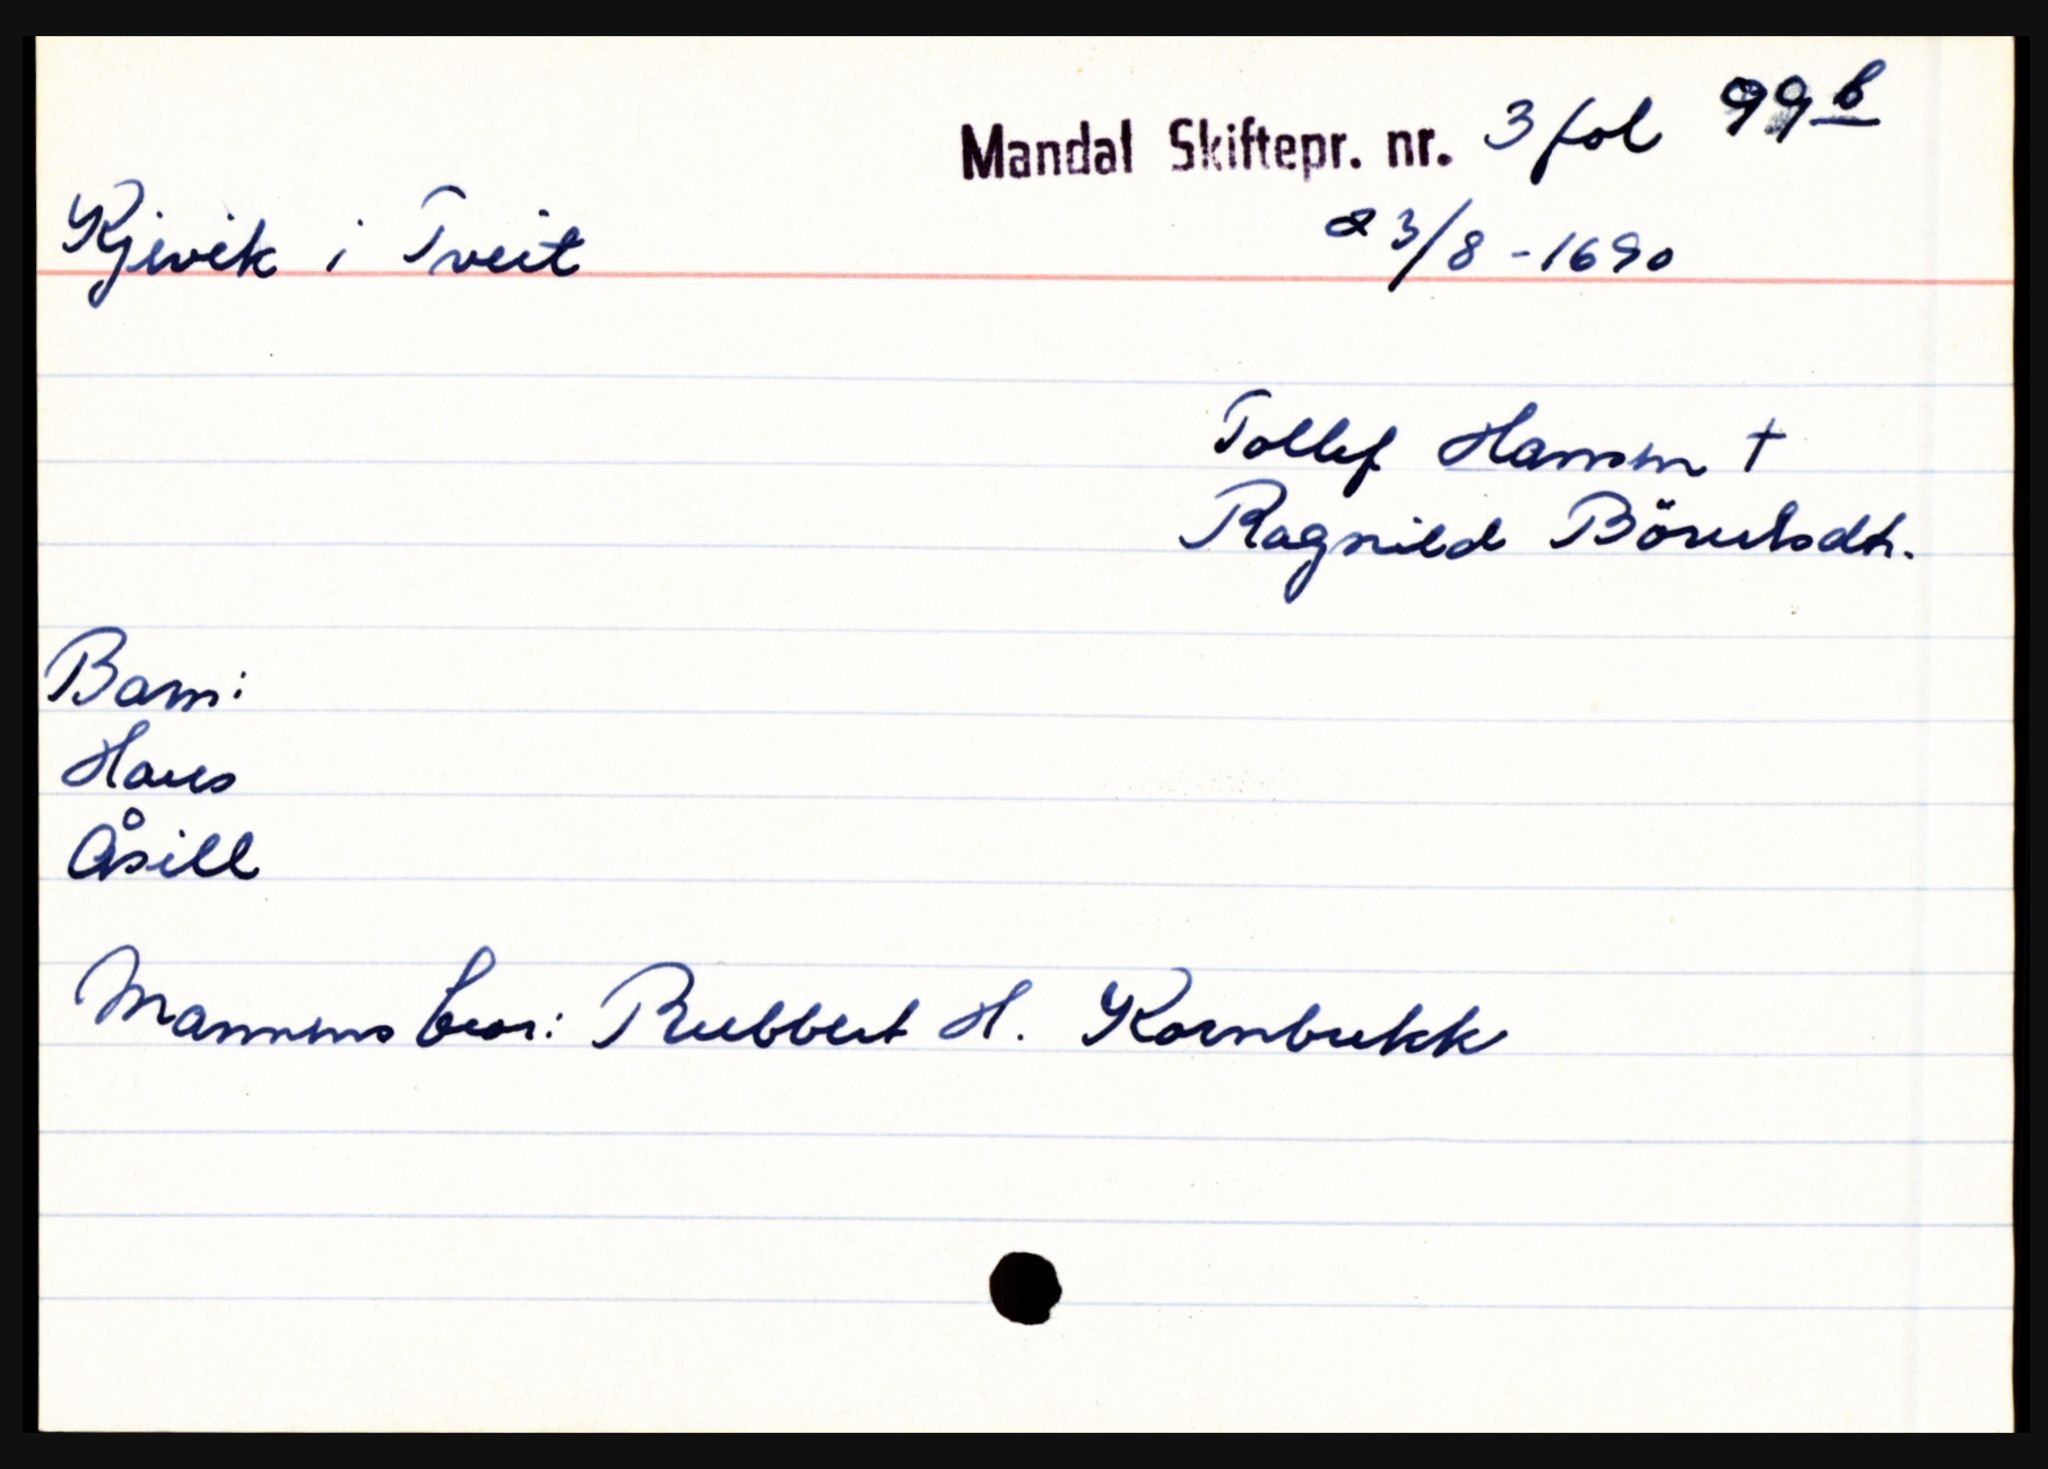 Mandal Skiftepr. nr. 3 fol 99 b
Kjevik i Tveit 23/8 - 1690
Tollef Hansen †
Ragnild Börulsdtr.
Barn:
Hans
Åsill
Mannens bror: Rubbert H. Kornbrekk